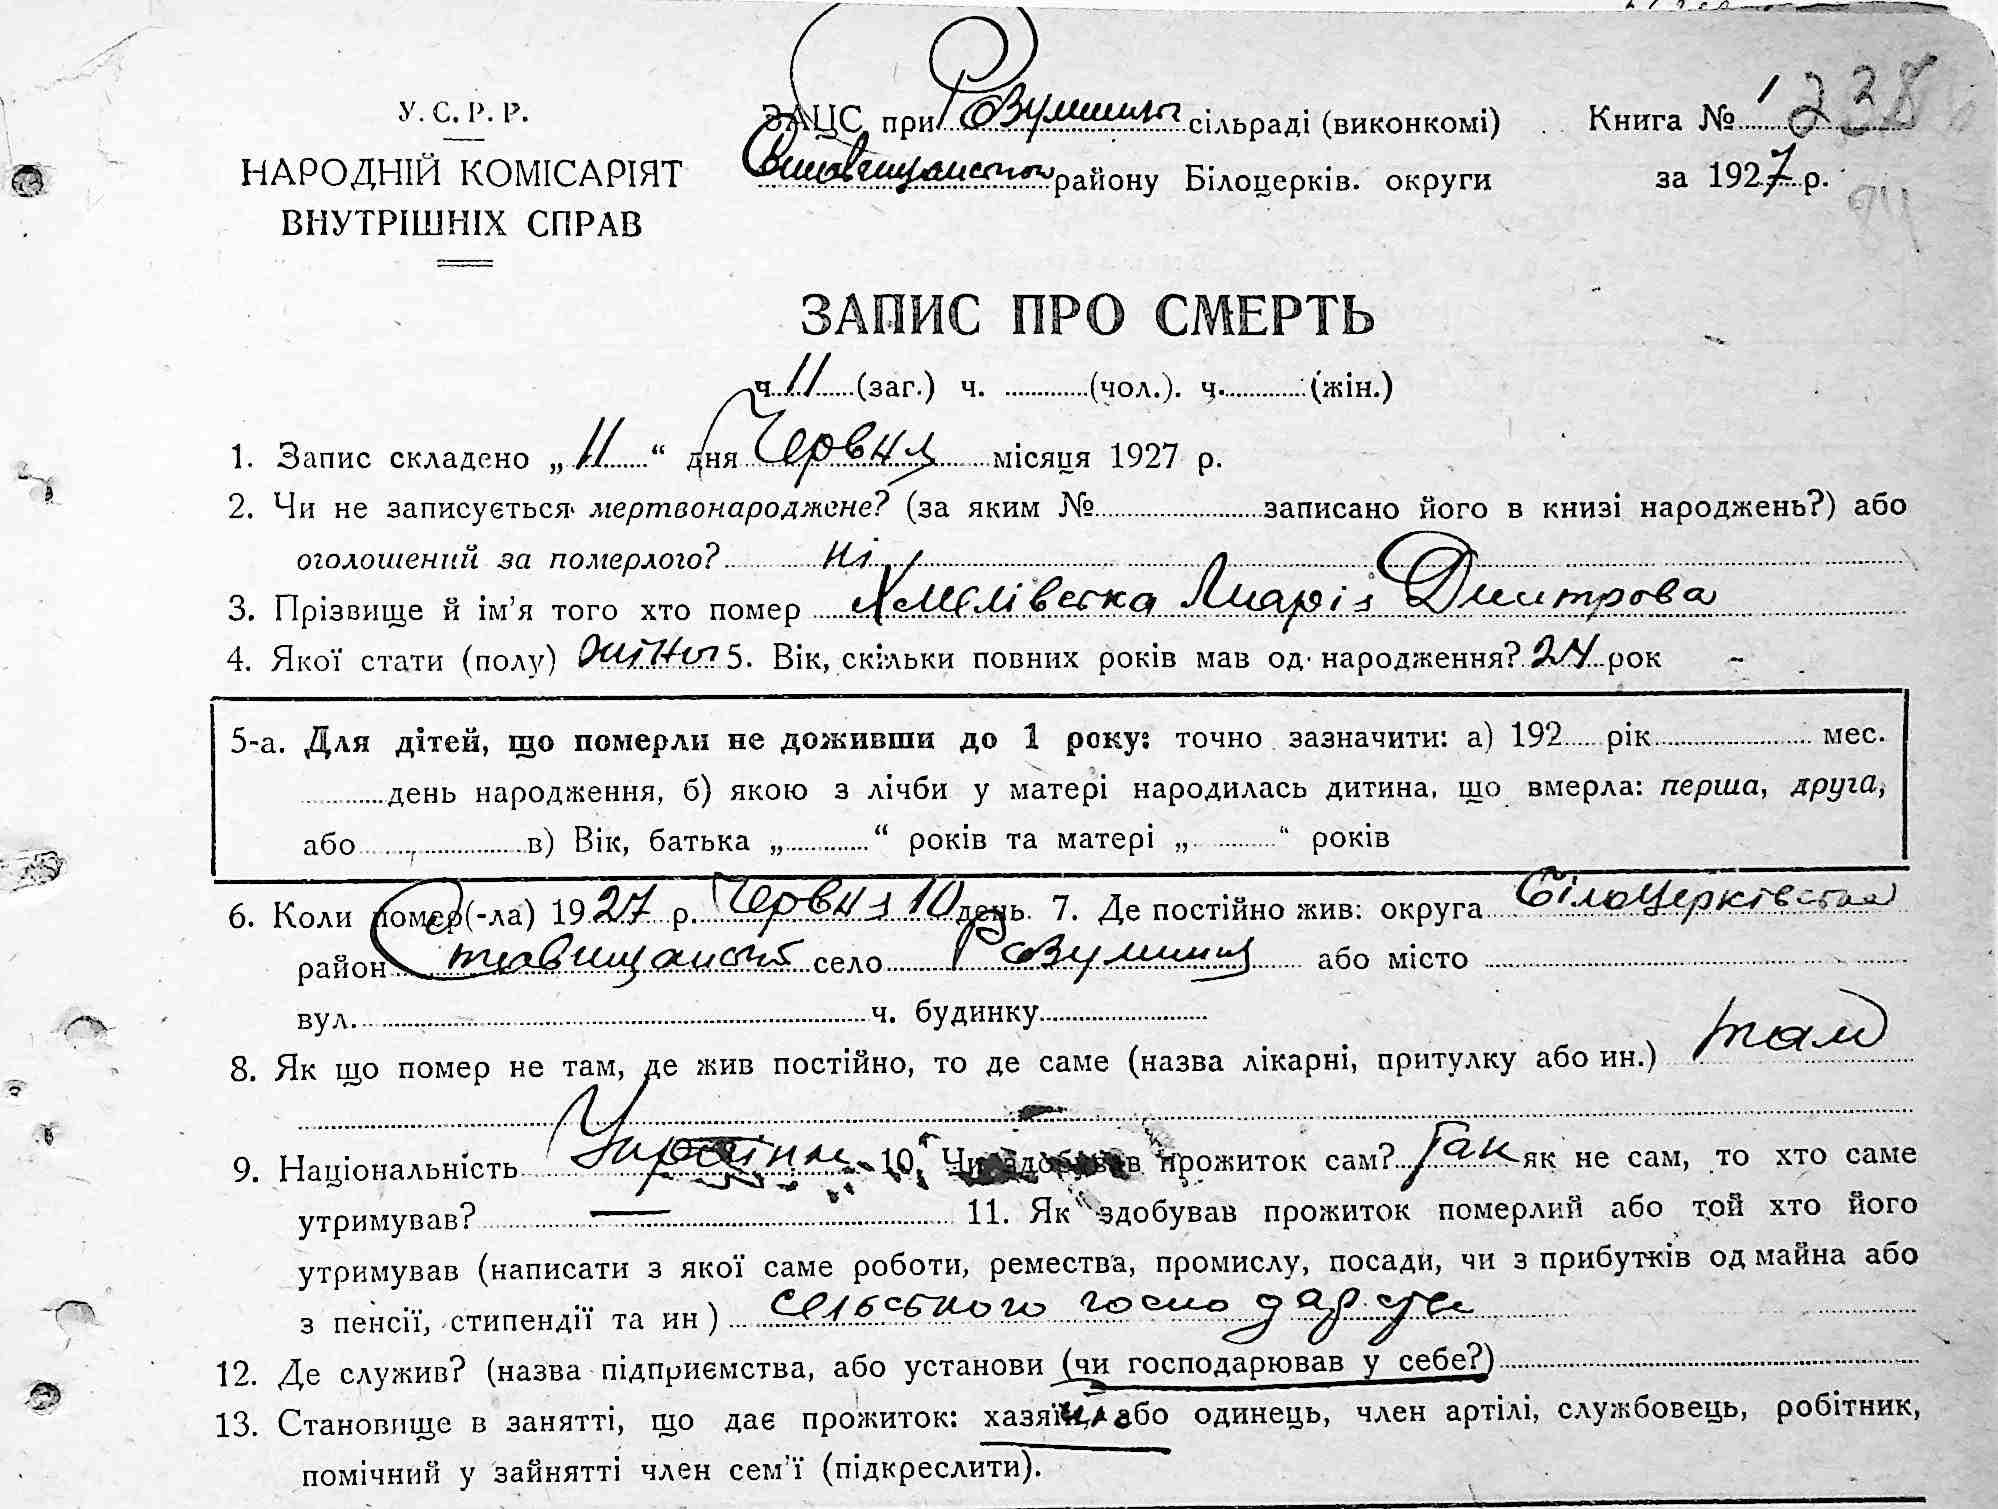 У. С. Р. Р.
НАРОДНІЙ КОМІСАРІЯТ
ВНУТРІШНІХ СПРАВ
ЗАЦС при Розумниц. сільраді (виконкомі)
Ставищанском району Білоцерків. округи
Книга № 1 238
за 1927 р.
ЗАПИС ПРО СМЕРТЬ
ч. 11 (заг.) ч. (чол.). ч. (жін.)
1. Запис складено „ 11 “ дня Червня місяця 1927 р.
2. Чи не записується мертвонароджене? (за яким № записано його в книзі народжень?) або
оголошений за померлого? ні
3. Прізвище й ім'я того хто помер Хмелівська Марія Дмитрова
4. Якої стати (полу) жіноч 5. Вік, скільки повних років мав од народження? 24 рок
5-а. Для дітей, що померли не доживши до 1 року: точно зазначити: а) 192 рік мес.
день народження, б) якою з лічби у матері народилась дитина, що вмерла: перша, друга,
або в) Вік, батька „ “ років та матері „ “ років
6. Коли помер(-ла) 1927 р. Червня 10 день. 7. Де постійно жив: округа Білоцерківська
район Ставищанський село Розумниця або місто
вул. ч. будинку
8. Як що помер не там, де жив постійно, то де саме (назва лікарні, притулку або ин.) там
9. Національність Україн. 10. Чи здобував прожиток сам? Так як не сам, то хто саме
утримував? — 11. Як здобував прожиток померлий або той хто його
утримував (написати з якої саме роботи, ремества, промислу, посади, чи з прибутків од майна або
з пенсії, стипендії та ин ) сельського господарства
12. Де служив? (назва підприємства, або установи (чи господарював у себе?)
13. Становище в занятті, що дає прожиток: хазяїн або одинець, член артілі, службовець, робітник,
помічний у зайнятті член сем'ї (підкреслити).